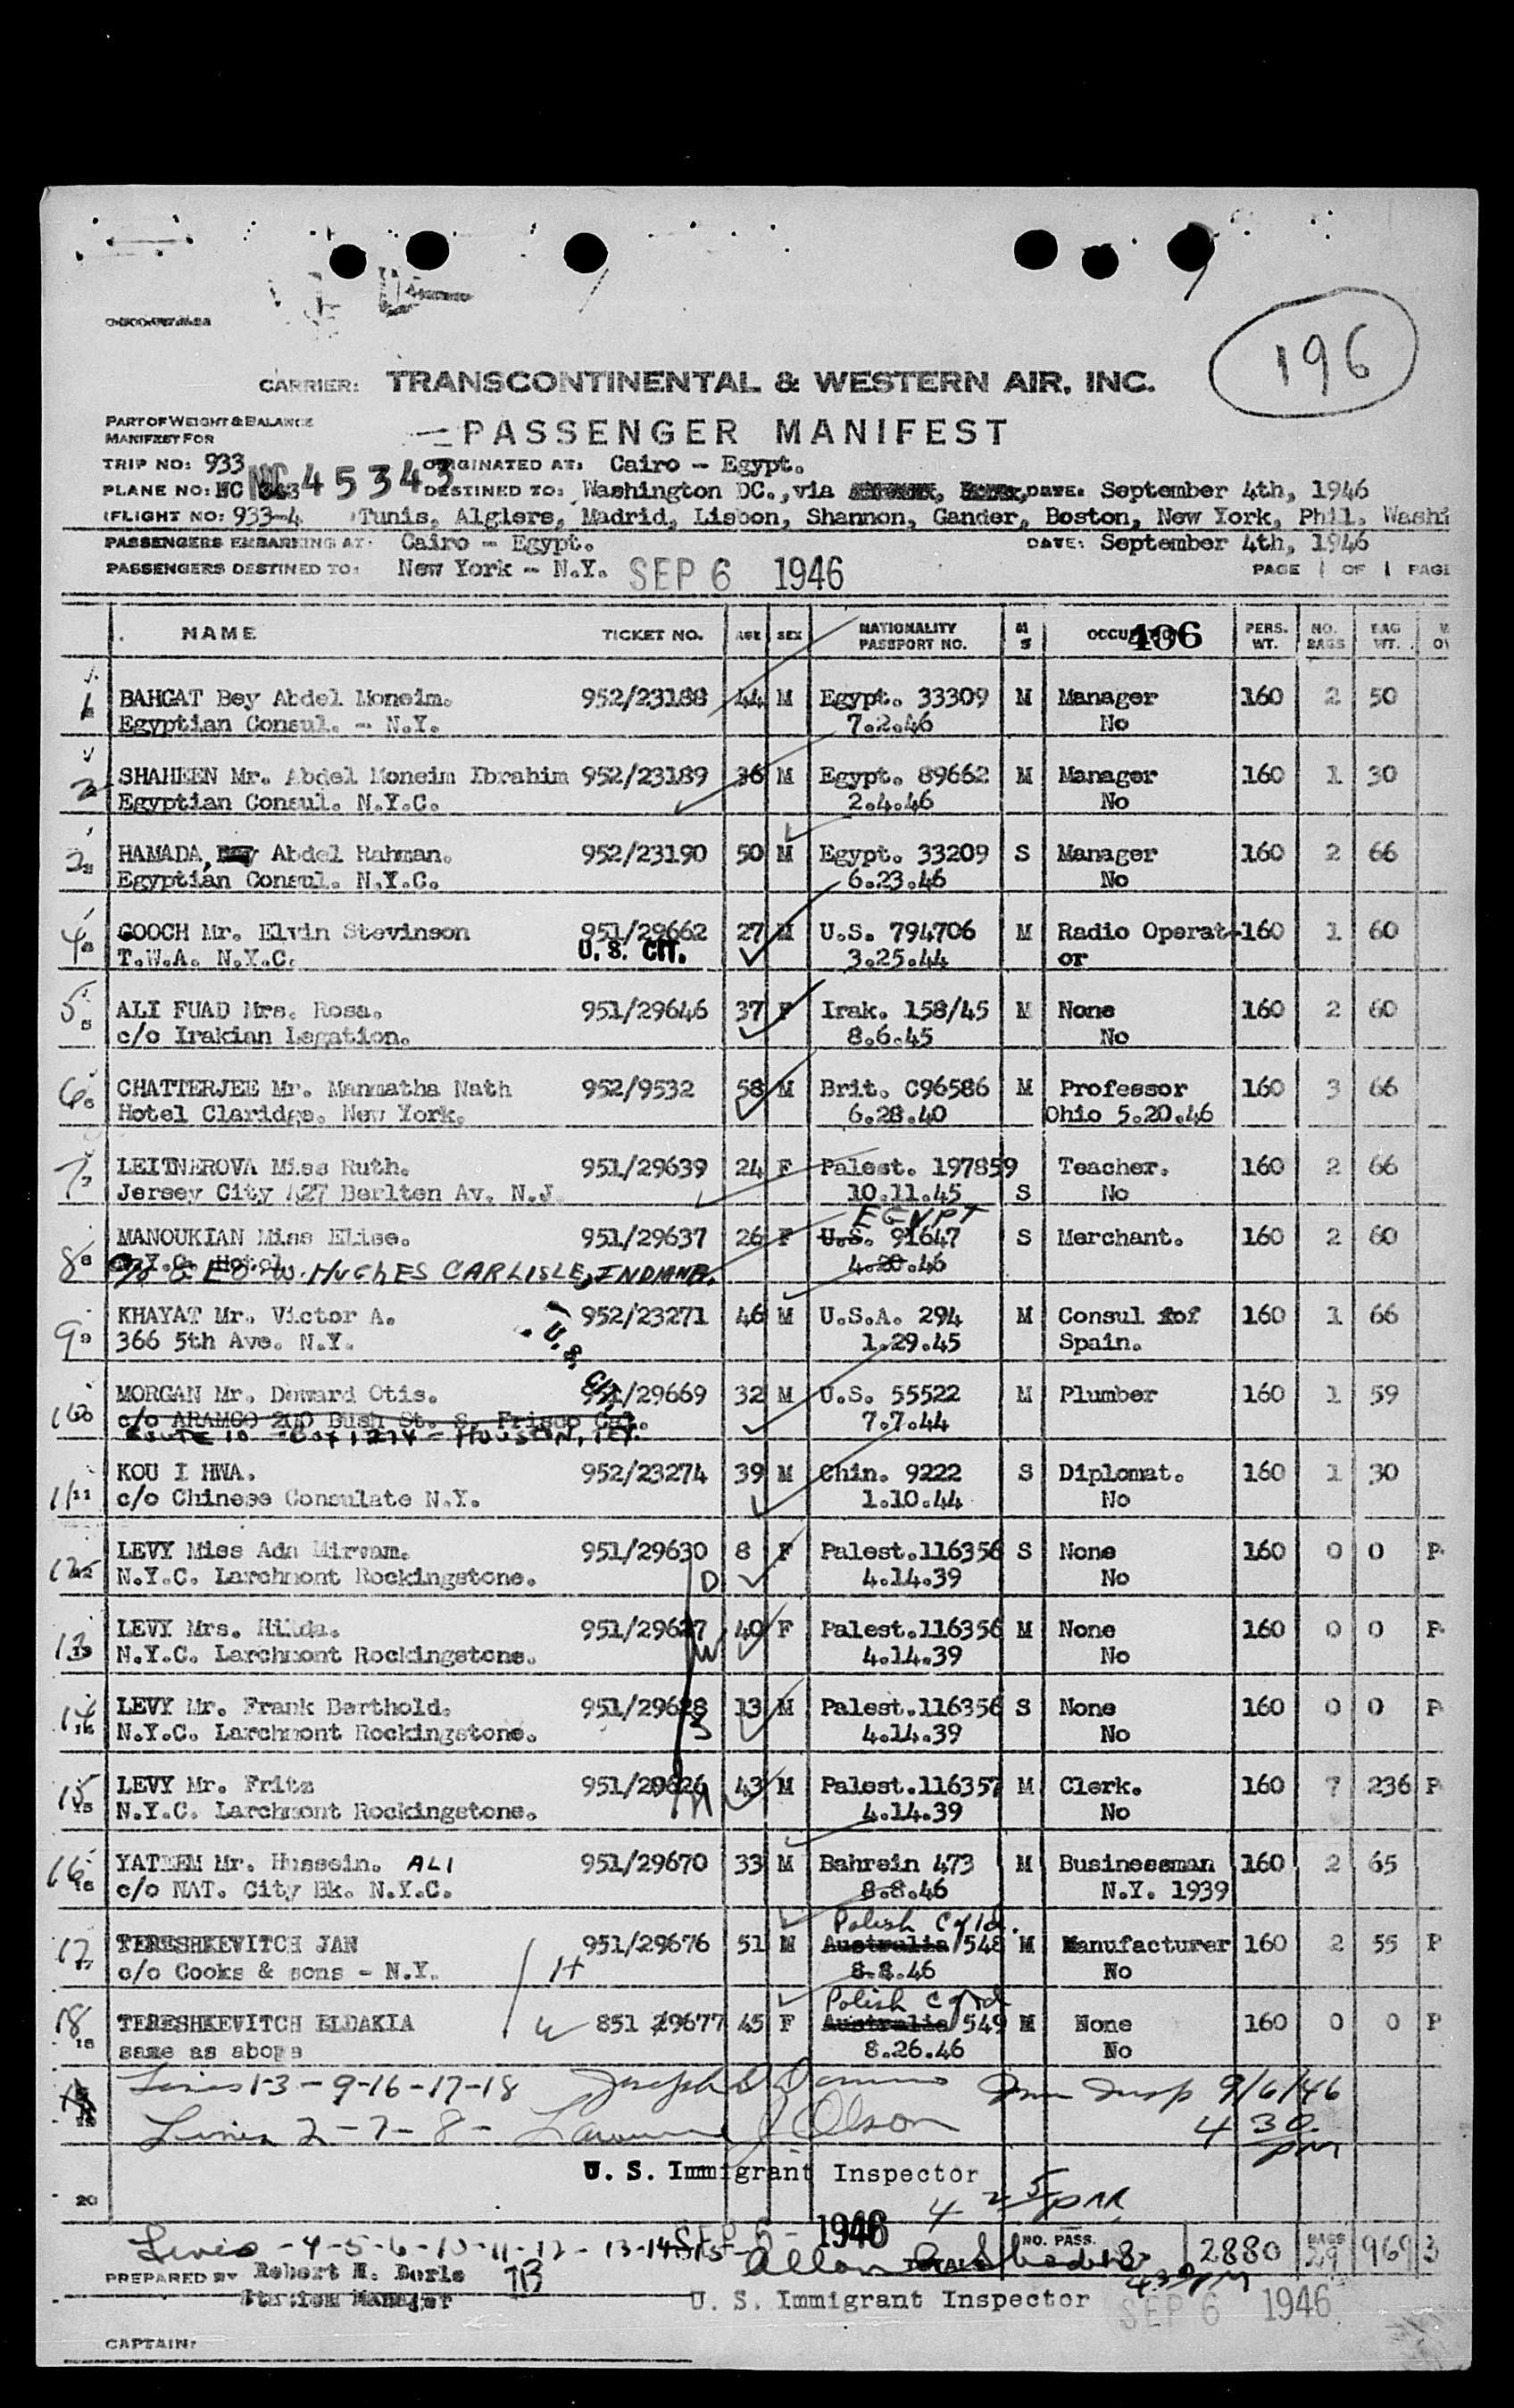 196
CARRIER: TRANSCONTINENTAL & WESTERN AIR, INC.
PART OF WEIGHT & BALANCE
MANIFEST FOR
PASSENGER MANIFEST
TRIP NO: 933 ORIGINATED AT: Cairo - Egypt.
PLANE NO: NC NC 45343 DESTINED TO: Washington DC., via DATE: September 4th, 1946
FLIGHT NO: 933-4 Tunis, Algiers, Madrid, Lisbon, Shannon, Gander, Boston, New York, Phil. Washi
PASSENGERS EMBARKING AT: Cairo - Egypt. DATE: September 4th, 1946
PASSENGERS DESTINED TO: New York - N.Y. SEP 6 1946 PAGE 1 OF 1 PAGE
NAME TICKET NO. AGE SEX NATIONALITY PASSPORT NO. M S 406 PERS. WT. NO. BAGS BAG WT.
1 BAHGAT Bey Abdel Moneim. 952/23188 44 M Egypt. 33309 M Manager 160 2 50
Egyptian Consul. - N.Y. 7.2.46 No
2 SHAHEEN Mr. Abdel Moneim Ibrahim 952/23189 36 M Egypt. 89662 M Manager 160 1 30
Egyptian Consul. N.Y.C. 2.4.46 No
3 HAMADA, Bey Abdel Rahman. 952/23190 50 M Egypt. 33209 S Manager 160 2 66
Egyptian Consul. N.Y.C. 6.23.46 No
4 GOOCH Mr. Elvin Stevinson 951/29662 27 M U.S. 794706 M Radio Operat- 160 1 60
T.W.A. N.Y.C. U.S. CIT. 3.25.44 or
5 ALI FUAD Mrs. Rosa. 951/29646 37 F Irak. 158/45 M None 160 2 60
c/o Irakian Legation. 8.6.45 No
6 CHATTERJEE Mr. Manmatha Nath 952/9532 58 M Brit. C96586 M Professor 160 3 66
Hotel Claridge. New York. 6.28.40 Ohio 5.20.46
7 LEITNEROVA Miss Ruth. 951/29639 24 F Palest. 197859 Teacher. 160 2 66
Jersey City 427 Berlten Av. N.J. 10.11.45 S No
EGYPT
8 MANOUKIAN Miss Elise. 951/29637 26 F U.S. 91647 S Merchant. 160 2 60
N.Y.C. Hotel 4.20.46
c/o GEO W. HUGHES CARLISLE, INDIANA.
9 KHAYAT Mr. Victor A. 952/23271 46 M U.S.A. 294 M Consul fof 160 1 66
366 5th Ave. N.Y. U.S. CIT. 1.29.45 Spain.
10 MORGAN Mr. Doward Otis. 951/29669 32 M U.S. 55522 M Plumber 160 1 59
c/o ARAMCO 200 Bush St. S. Frisco Cal. 7.7.44
ROUTE 10 BOX 1274 - HOUSTON, TEX.
11 KOU I HWA. 952/23274 39 M Chin. 9222 S Diplomat. 160 1 30
c/o Chinese Consulate N.Y. 1.10.44 No
12 LEVY Miss Ada Mirvam. 951/29630 8 F Palest.116356 S None 160 0 0 P
N.Y.C. Larchmont Rockingstone. D 4.14.39 No
13 LEVY Mrs. Hilda. 951/29627 40 F Palest.116356 M None 160 0 0 P
N.Y.C. Larchmont Rockingstone. W 4.14.39 No
14 LEVY Mr. Frank Berthold. 951/29628 13 M Palest.116356 S None 160 0 0 P
N.Y.C. Larchmont Rockingstone. S 4.14.39 No
15 LEVY Mr. Fritz 951/29626 43 M Palest.116357 M Clerk. 160 7 236 P
N.Y.C. Larchmont Rockingstone. H 4.14.39 No
16 YATEEM Mr. Hussein. ALI 951/29670 33 M Bahrein 473 M Businessman 160 2 65
c/o NAT. City Bk. N.Y.C. 8.8.46 N.Y. 1939
Polish
17 TERESHKEVITCH JAN 951/29676 51 M Australia 548 M Manufacturer 160 2 55 P
c/o Cooks & sons - N.Y. H 8.8.46 No
Polish
18 TERESHKEVITCH ELDAKIA W 851 29677 45 F Australia 549 M None 160 0 0 P
same as above 8.26.46 No
Lines 1-3-9-16-17-18 Joseph Imm Insp 9/6/46
Lines 2-7-8- Olson 4 30 PM
U. S. Immigrant Inspector
20 4 25 PM
SEP 6 - 1946
Lines -4-5-6-10-11-12-13-14-15- Allan NO. PASS. 18 2880 BAGS 29 969 3
TOTALS 4:30 PM
PREPARED BY Robert
Station Manager U. S. Immigrant Inspector SEP 6 1946
CAPTAIN: